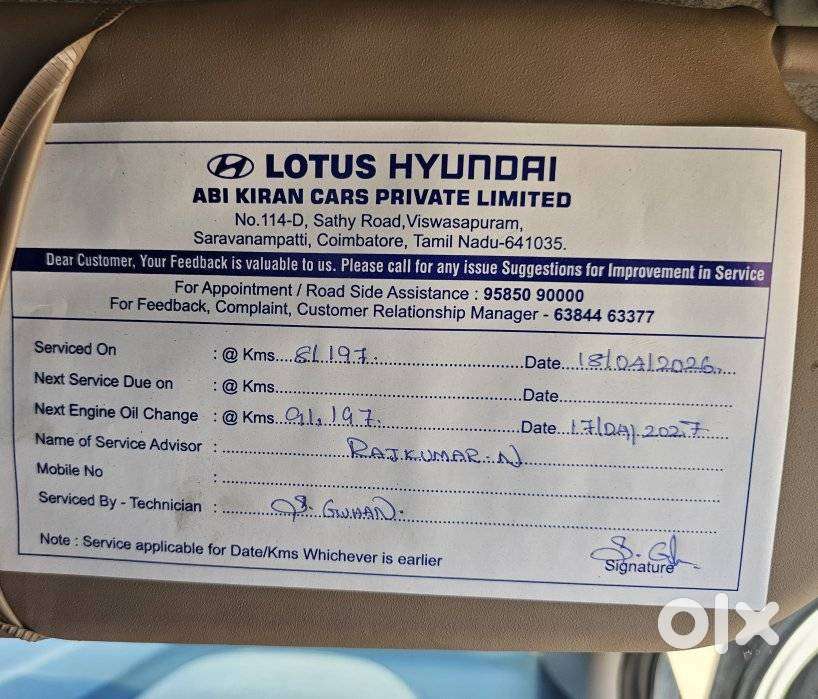 LOTUS HYUNDAI
ABI KIRAN CARS PRIVATE LIMITED
No.114-D, Sathy Road,Viswasapuram,
Saravanampatti, Coimbatore, Tamil Nadu-641035.
Dear Customer, Your Feedback is valuable to us. Please call for any issue Suggestions for Improvement in Service
For Appointment / Road Side Assistance : 95850 90000
For Feedback, Complaint, Customer Relationship Manager - 63844 63377
Serviced On : @ Kms....81,197.............Date...18/04/2026.
Next Service Due on : @ Kms.............Date.............
Next Engine Oil Change : @ Kms....91,197.............Date...17/04/2027
Name of Service Advisor : RAJKUMAR.N
Mobile No :
Serviced By - Technician :
Note : Service applicable for Date/Kms Whichever is earlier
Signature
olx